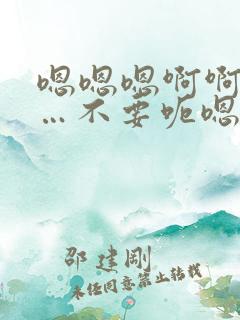 嗯嗯嗯啊啊
…不要呃嗯
邵建刚
未经同意禁止转载